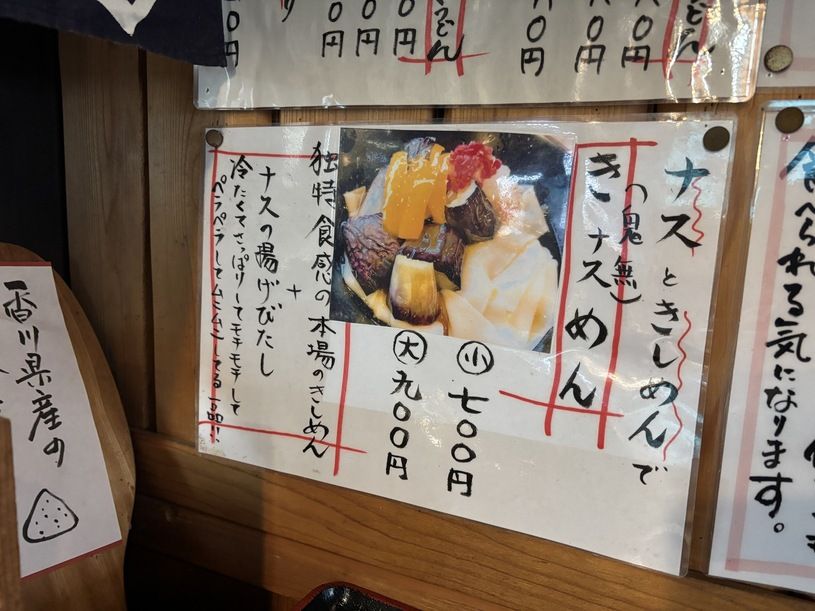 うどん
〇〇円
〇〇円
〇〇円
うどん
〇〇円
〇〇円
〇〇円
〇円
ナスときしめんで
(鬼無)
きナスめん
小 七〇〇円
大 九〇〇円
独特食感の本場のきしめん
+
ナスの揚げびたし
冷たくてさっぱりしてモチモチして
ペラペラしてムニムニしてる一品!!
食べられる気になります。
香川県産の